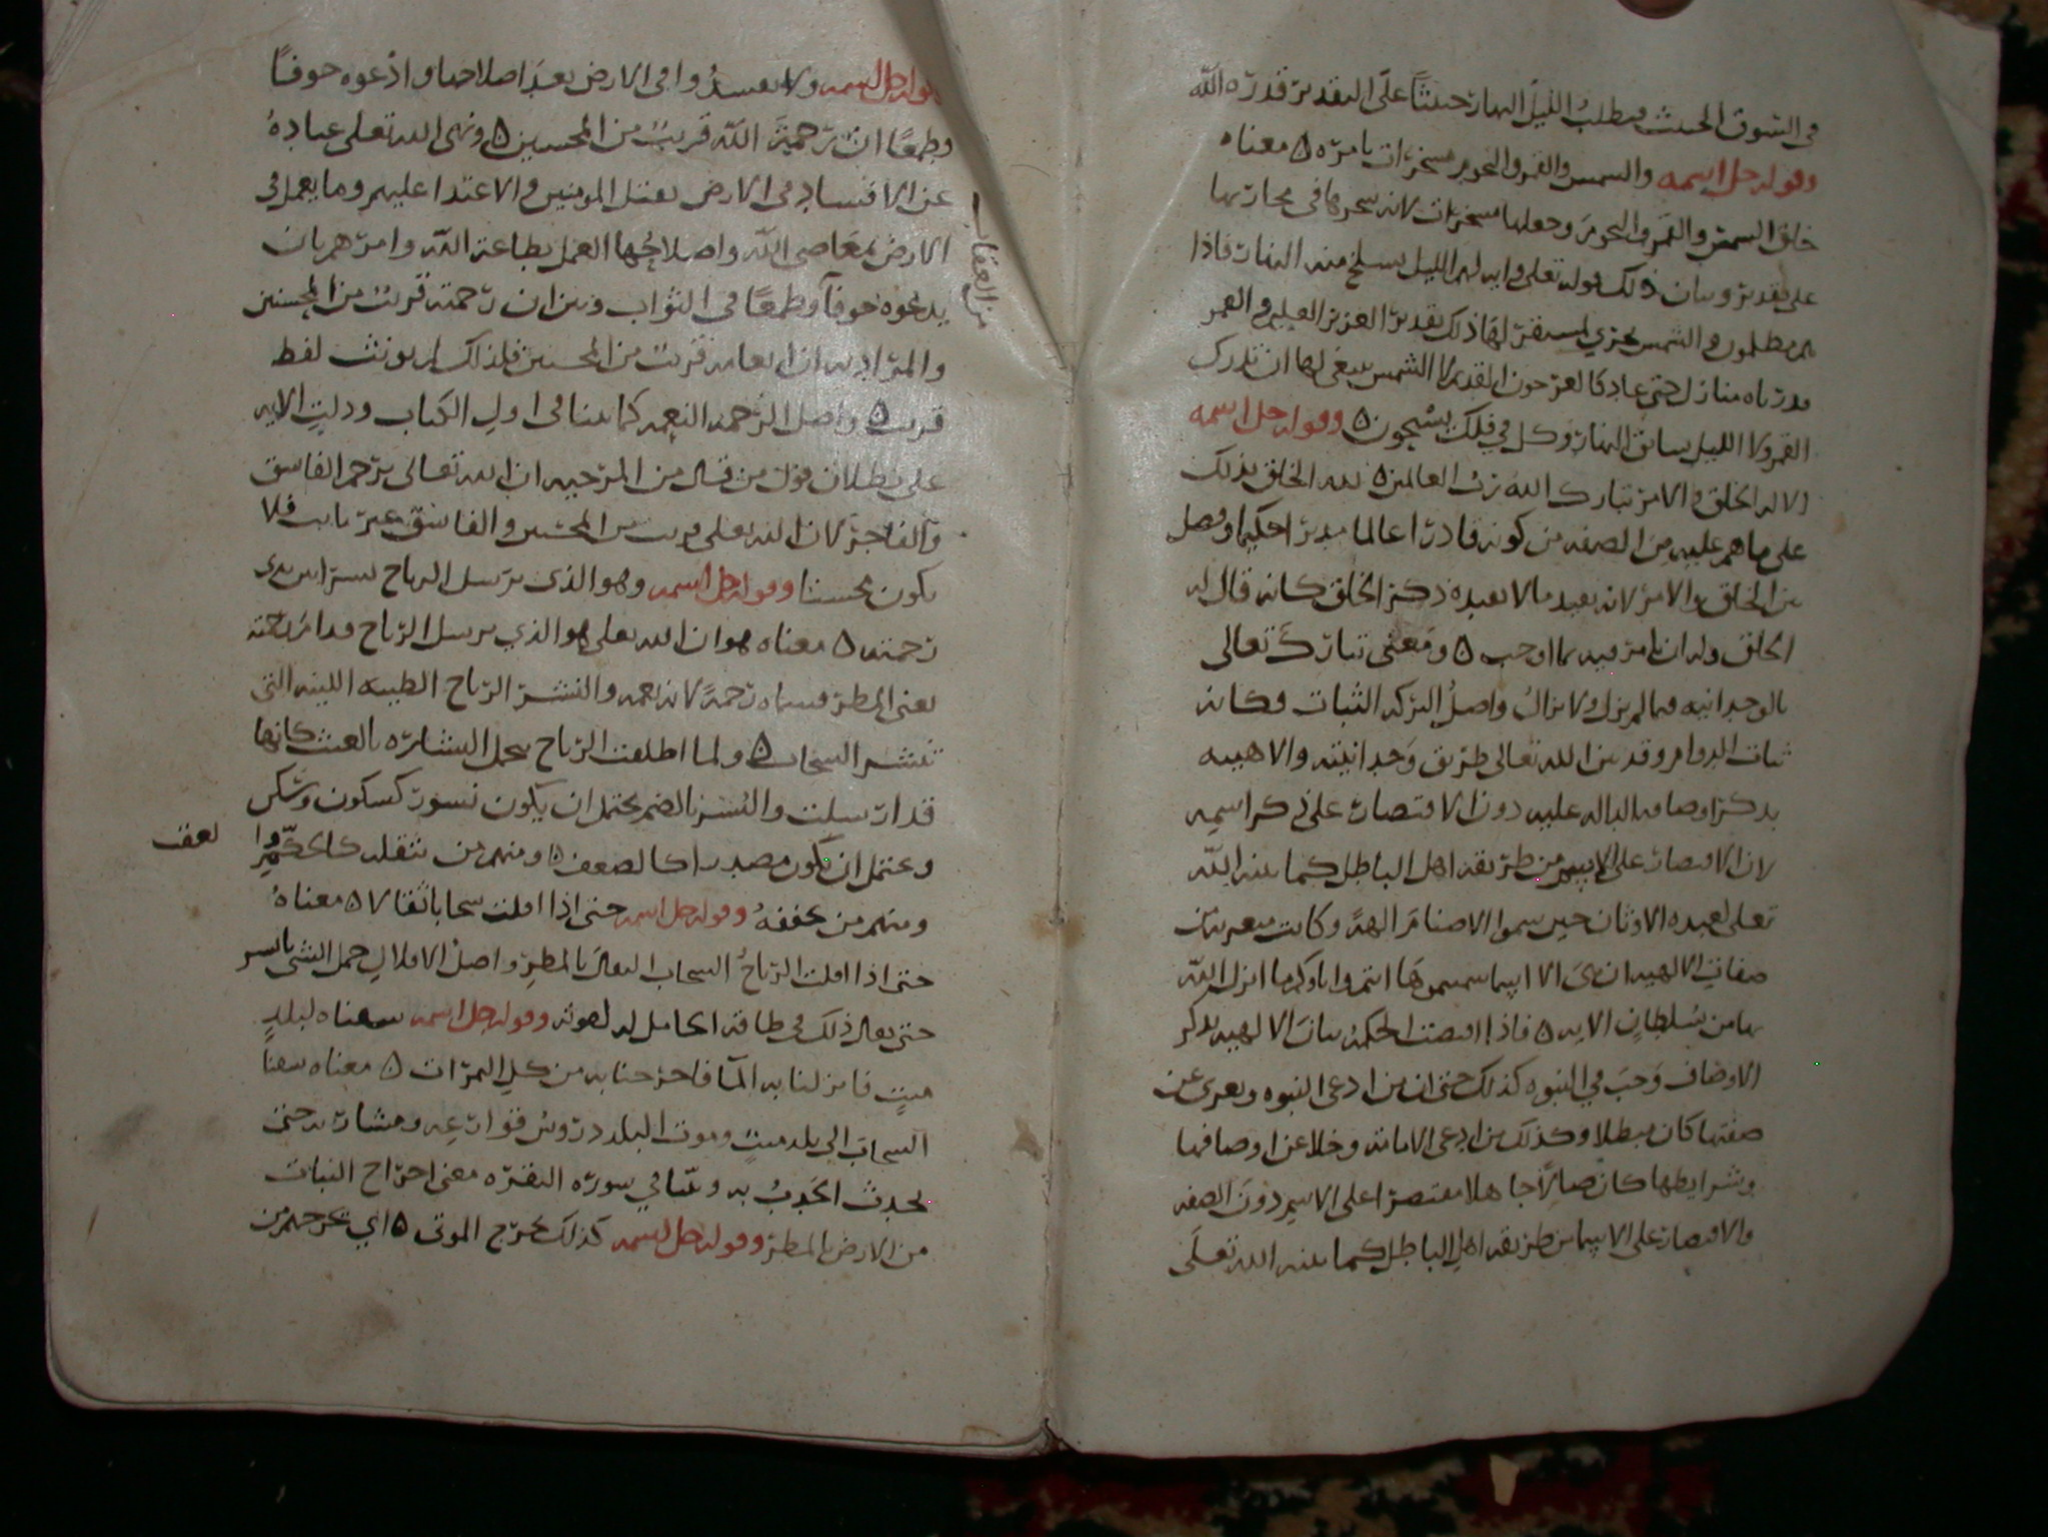 في السوق الحثيث فيطلب الليل النهار حثيثا على التقدير قدره الله
وقوله جل اسمه والشمس والقمر والنجوم مسخرات بامره ٥ معناه
خلق الشمس والقمر والنجوم وجعلها مسخرات لانه سخرها في مجاريها
على تقدير وبيان ذلك قوله تعلى واية لهم الليل نسلخ منه النهار فاذا
هم مظلمون والشمس تجري لمستقر لها ذلك تقدير العزيز العليم والقمر
قدرناه منازل حتى عاد كالعرجون القديم لا الشمس ينبغي لها ان تدرك
القمر ولا الليل سابق النهار وكل في فلك يسبحون ٥ وقوله جل اسمه
الا له الخلق والامر تبارك الله رب العالمين ٥ لله الخلق بذلك
على ما هم عليه من الصفه من كونه قادرا عالما مدبرا حكيما وفصل
بين الخلق والامر لانه يفيد ما لا يفيده ذكر الخلق كانه قال له
الخلق وله ان يامر فيه بما اوجب ٥ ومعنى تبارك تعالى
بالوحدانيه فيما لم يزل ولا يزال واصل البركه الثبات فكانه
ثبات الدوام وقد بين الله تعالى طريق وحدانيته والاهيته
بذكر اوصافه الداله عليه دون الاقتصار على ذكر اسمه
لان الاقتصار على الاسم من طريقه اهل الباطل كما بينه الله
تعلى لعبده الاوثان حين سموا الاصنام الهة وكانت متعريات من
صفات الالهيه ان هي الا اسما سميتموها انتم واباوكم ما انزل الله
بها من سلطان الايه ٥ فاذا اقتضت الحكمة بيان الالهيه بذكر
الاوصاف وجب في النبوه كذلك حتى ان من ادعى النبوه وتعرى عن
صفتها كان مبطلا وكذلك من ادعى الامامة وخلا عن اوصافها
وشرايطها كان ضالا جاهلا مقتصرا على الاسم دون الصفه
والاقتصار على الاسما من طريقه اهل الباطل كما بينه الله تعلى
وقوله جل اسمه ولا تفسدوا في الارض بعد اصلاحها وادعوه خوفا
وطمعا ان رحمة الله قريب من المحسنين ٥ ونهى الله تعلى عباده
عن الافساد في الارض بقتل المومنين والاعتدا عليهم وما يعمل في
الارض بمعاصي الله واصلاحها العمل بطاعة الله وامرهم بان
يدعوه خوفا وطمعا في الثواب وبين ان رحمته قريب من المحسنين
من العقاب
والمراد به ان انعامه قريب من المحسنين فلذلك لم يونث لفظ
قريب ٥ واصل الرحمه النعمه كما بينا في اول الكتاب ودلت الايه
على بطلان قول من قال من المرجيه ان الله تعالى يرحم الفاسق
والفاجر لان الله تعلى قريب من المحسنين والفاسق غير تايب فلا
يكون محسنا وقوله جل اسمه وهو الذي يرسل الرياح نشرا بين يدي
رحمته ٥ معناه هو ان الله تعلى هو الذي يرسل الرياح قدام رحمته
يعني المطر فسماه رحمة لانه نعمه والنشر الرياح الطيبه اللينه التي
تنشر السحاب ٥ ولما اطلقت الرياح تحمل البشاره بالغيث كانها
قد ارسلت والنشر بالضم يحتمل ان يكون نسور كسكون وشكر
ويحتمل ان يكون مصدرا كالضعف ٥ ومنهم من يثقله
لعقب
ومنهم من يخففه وقوله جل اسمه حتى اذا اقلت سحابا ثقالا ٥ معناه
حتى اذا اقلت الرياح السحاب الثقال بالمطر واصل الاقلال حمل الشي باسره
حتى يقال ذلك في طاقة الحامل له لقوته وقوله جل اسمه سقناه لبلد
ميت فانزلنا به الما فاخرجنا به من كل الثمرات ٥ معناه سقنا
السحاب الى بلد ميت وموت البلد دروس فوارعه ومشاربه حتى
يحدث الجدب به وبينا في سورة البقره معنى اخراج النبات
من الارض بالمطر وقوله جل اسمه كذلك نخرج الموتى ٥ اي نخرجهم من